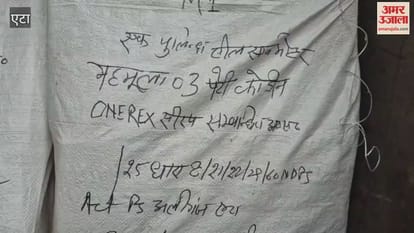 एटा
अमर उजाला
amarujala.com
M 1
एक पुलिन्दा सील सर्वमोहर
महमूला 03 पेटी कोडीन
ONEREX सीरप सम्बन्धित
125 धारा 8/21/22/28/60 NDPS
Act PS अलीगंज एटा